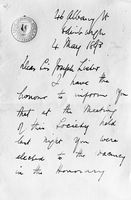 Albany St
Edinburgh
4 May 1898
Dear Sir Joseph Lister
I have the
honour to inform you
that at the Meeting
of this Society held
last night you were
elected to the vacancy
in the Honorary